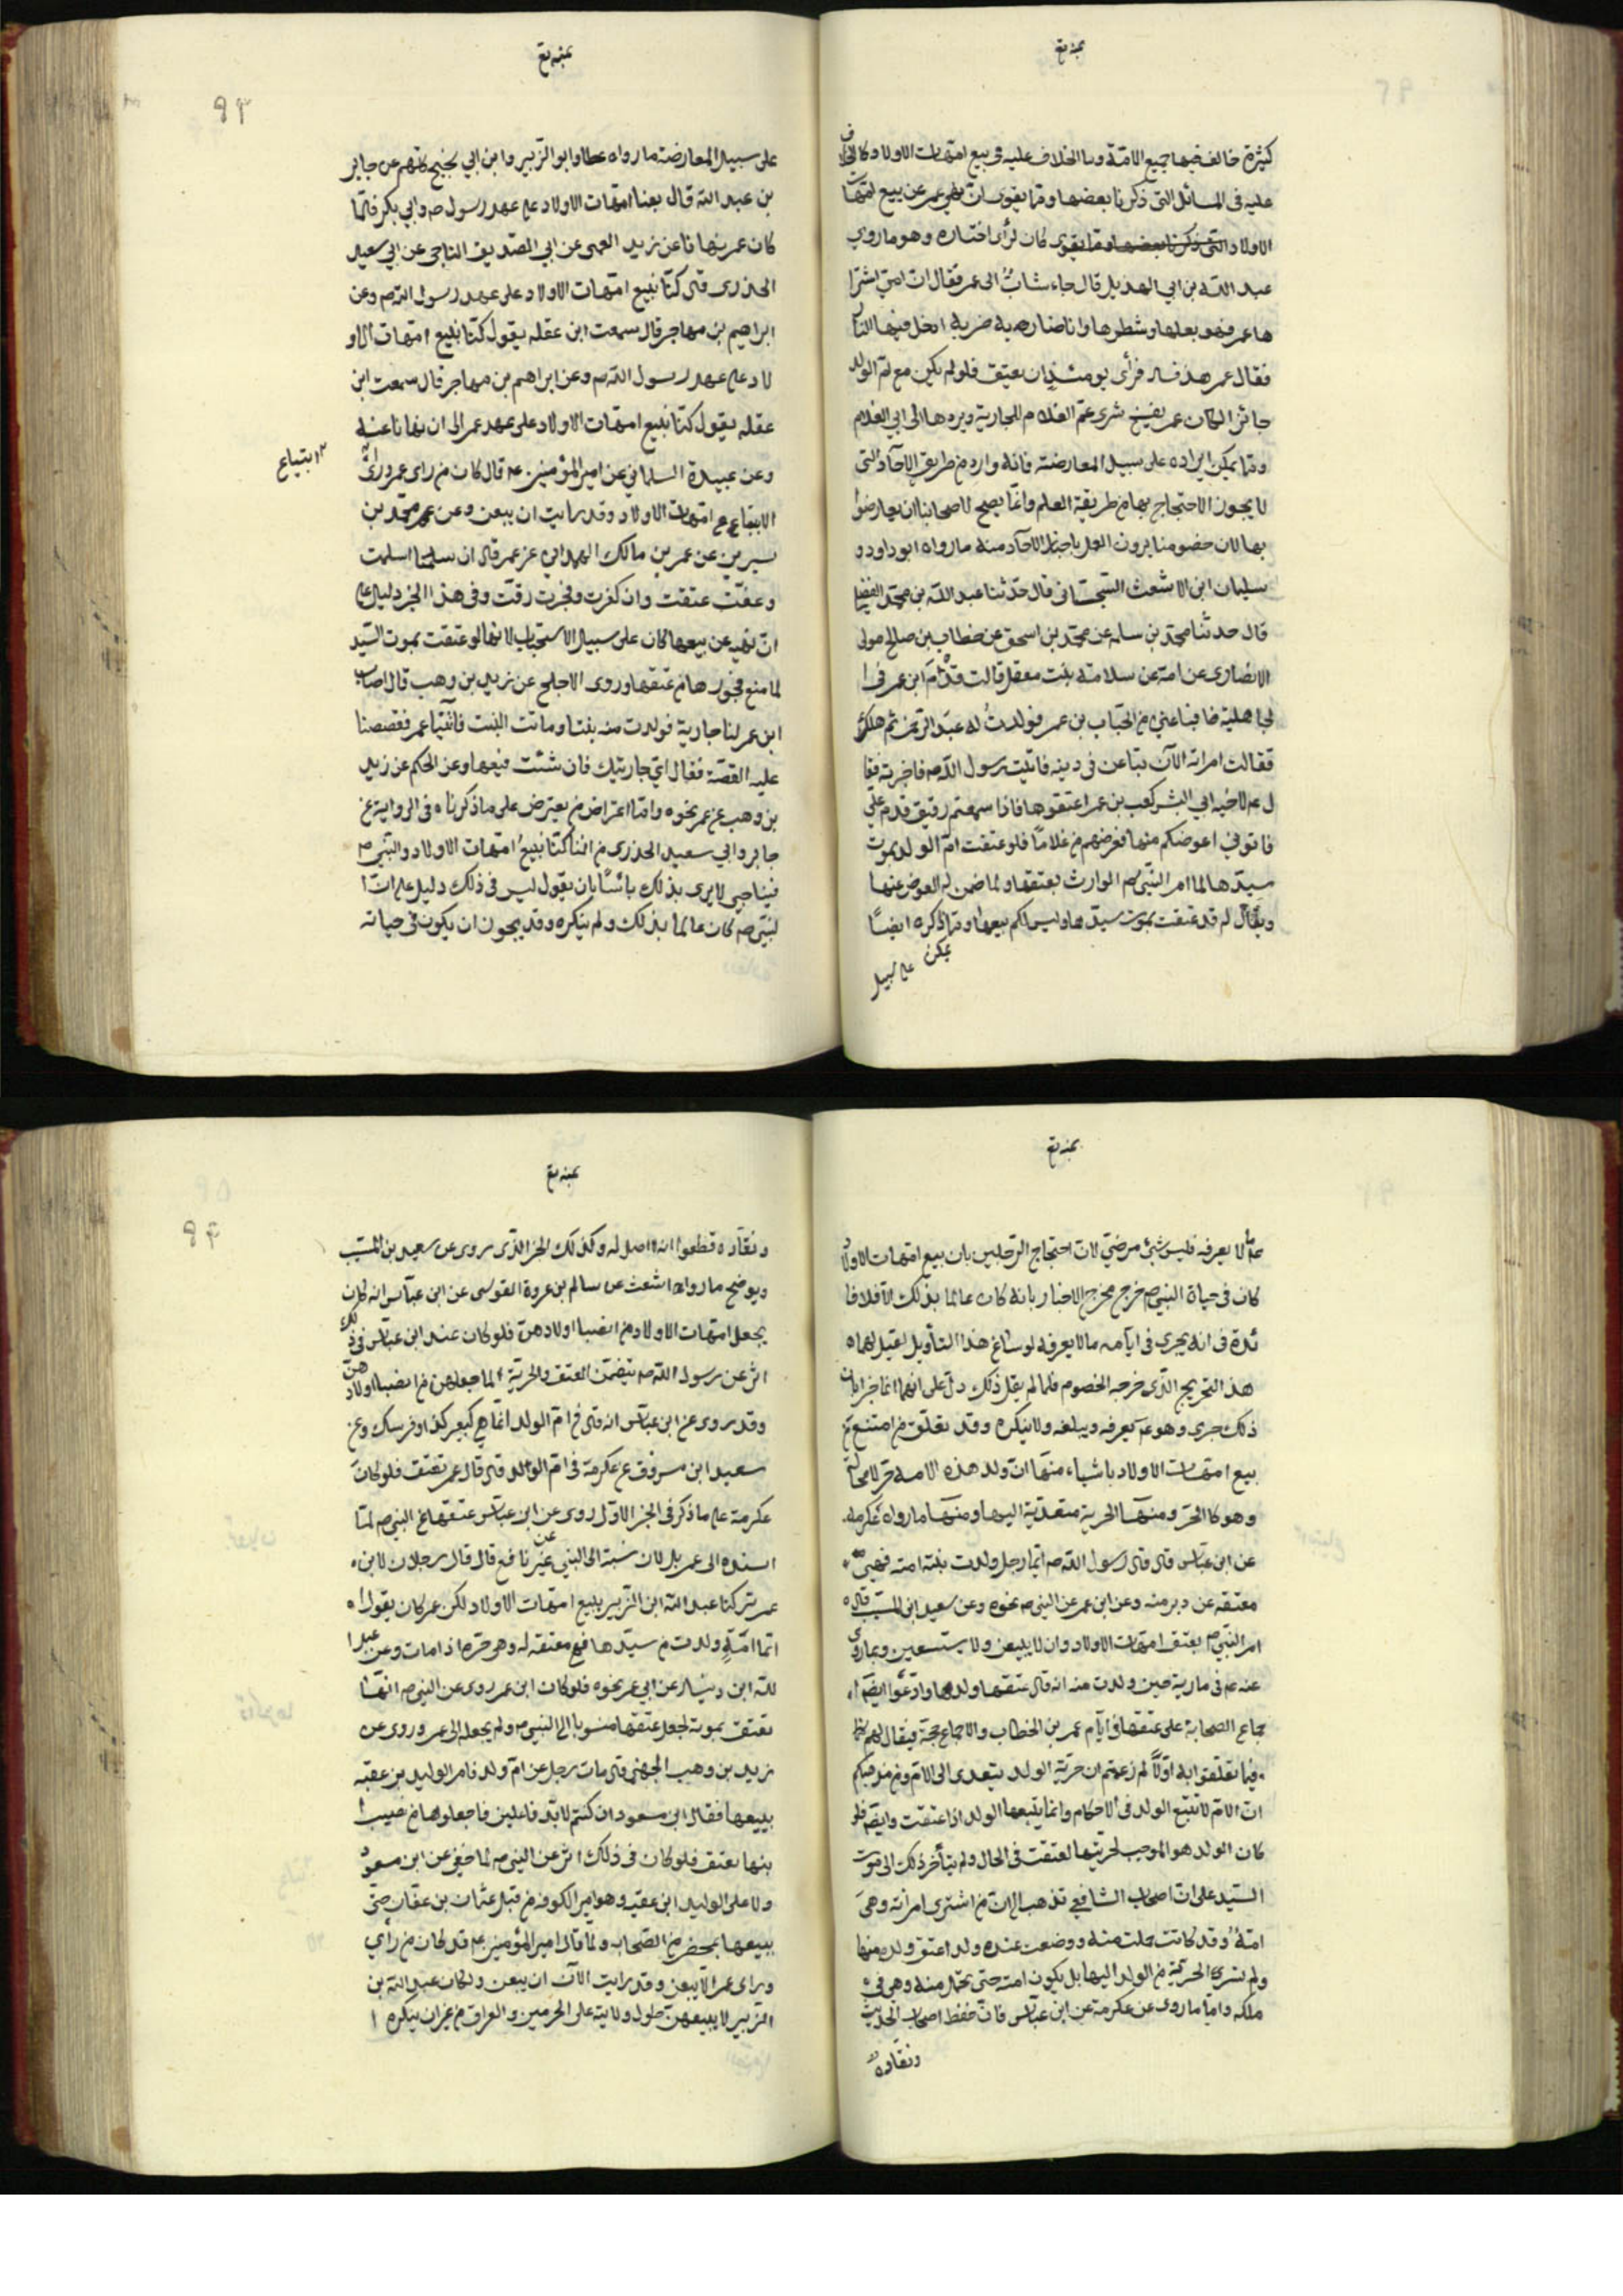 كثيرة خالف فيها جميع الامة وما الخلاف عليه في بيع امهات الاولاد كالخلاف
عليه في المسائل التي ذكرنا بعضها ومما يقوى ان نهي عمر عن بيع امهات
الاولاد كان لرأى اختاره وهو ما روى
عبد الله بن ابي الهذيل قال جاء شاب الى عمر فقال ان امي اشترا
ها عمي فهو بعلها وشطرها وانا ضاربه ضربة ادخل فيها النار
فقال عمر هذ فساد فرأى يومئذ ان يعتق فلو لم يكن بيع ام الولد
جائزا لكان عمر يفسخ شرى عم الغلام للجارية ويردها الى ابي الغلام
ومما يمكن ايراده على سبيل المعارضة فانه وارد من طريق الآحاد التي
لا يجوز الاحتجاج بها في طريقة العلم وانما يصح لاصحابنا ان يعارضوا
بها لان خصومنا يرون العمل باخبار الآحاد منه ما رواه ابو داود
سليمان ابن الاشعث السجستاني قال حدثنا عبد الله بن محمد النفيلي
قال حدثنا محمد بن سلمه عن محمد بن اسحق عن خطاب بن صالح مولى
الانصارى عن امه عن سلامة بنت معقل قالت قدم ابن عمر في ا
لجاهلية فباعني من الحباب بن عمر فولدت له عبد الرحمن ثم هلك
فقالت امرأته الآن تباعن في دينه فاتيت رسول الله ص فاخبرته فقا
ل ع لاخيه ابي البشر كعب بن عمر اعتقوها فاذا سمعتم رقيق قدم علي
فاتوني اعوضكم منها فعوضهم من غلاما فلو عتقت ام الولد بموت
سيدها لما امر النبي ص الوارث بعتقها ولما ضمن له العوض عنها
ويقال له قد عتقت بموت سيدها وليس لكم بيعها ومما ذكره ايضا
يمكن على سبيل
على سبيل المعارضة ما رواه عطا وابو الزبير وابن ابي نجيح كلهم عن جابر
بن عبد الله قال بعنا امهات الاولاد على عهد رسول ص وابي بكر فلما
كان عمر نهانا عن زيد العمى عن ابي الصديق الناجى عن ابي سعيد
الخدرى قال كنا نبيع امهات الاولاد على عهد رسول الله ص وعن
ابراهيم بن مهاجر قال سمعت ابن عقله يقول كنا نبيع امهات الاو
لاد على عهد رسول الله ص وعن ابراهيم بن مهاجر قال سمعت ابن
عقله يقول كنا نبيع امهات الاولاد على عهد عمر الى ان نهانا عنه
وعن عبيدة السلماني عن امير المؤمنين ع قال كان من راى عمر ورأي
الابتياع امهات الاولاد وقد رايت ان يبعن وعن محمد بن
ابتياع
سيرين عن عمر بن مالك الهمداني عن عمر قال ان سلمنا اسلمت
وعفت عتقت وان كفرت وفجرت رقت وفي هذا الخبر دليل على
ان نهيه عن بيعها كان على سبيل الاستحباب لانها لو عتقت بموت السيد
لما منع فجورها من عتقها وروى الاجلح عن زيد بن وهب قال اصاب
ابن عمر لنا جارية فولدت منه بنتا وماتت البنت فاتينا عمر فقصصنا
عليه القصة فقال اي جاريتك فان شئت فبعها وعن الحكم عن زيد
بن وهب عن عمر نحوه واما اعتراض من يعترض على ما ذكرناه في الرواية عن
جابر وابي سعيد الخدرى من اننا كنا نبيع امهات الاولاد والنبي ص
فينا حي لا يرى بذلك بأسا بان يقول ليس في ذلك دليل على ان ا
لنبي ص كان عالما بذلك ولم ينكره وقد يجوز ان يكون في حياته
لا يعرفه فليس بشئ مرضي لان احتجاج الرجلين بان بيع امهات الاولاد
كان في حياة النبي ص خرج مخرج الاخبار بانه كان عالما بذلك الا فلا فا
ئدة في انه يجرى في ايامه ما لا يعرفه لو ساغ هذا التأويل لقيل لهما ه
هذ التخريج الذى خرجه الخصوم فلما لم يقل ذلك دل على انهما اخبرا بان
ذلك جرى وهو ع يعرفه ويبلغه ولا ينكره وقد تعلق من امتنع من
بيع امهات الاولاد باشياء منها ان ولد هذه الامة حر لا محالة
وهو كالجزء ومنها الحرية متعدية اليها ومنها ما رواه عكرمه
عن ابن عباس قال قال رسول الله ص ايما رجل ولدت منه امته فهي
معتقه عن دبر منه وعن ابن عمر عن النبي ص نحوه وعن سعيد ابن المسيب قال
امر النبي ص بعتق امهات الاولاد وان لا يبعن ولا يستسعين وبما روى
عنه ع في مارية حين ولدت منه انه قال عتقها ولدها وادعوا ايضا ا
جماع الصحابة على عتقها في ايام عمر بن الخطاب والاجماع حجة فيقال لهم
فيما تعلقوا به اولا لم زعمتم ان حرية الولد يتعدى الى الام ومن مذهبكم
ان الام لا تتبع الولد في الاحكام وانما يتبعها الولد اذا عتقت وايضا فلو
كان الولد هو الموجب لحريتها لعتقت في الحال ولم يتأخر ذلك الى موت
السيد على ان اصحاب الشافعي تذهب الى ان من اشترى امرأته وهى
امة وقد كانت حملت منه ووضعت عنده ولدا عتق ولده منها
ولم تسر الحرية من الولد اليها بل يكون امته حتى تحمل منه وهي في
ملكه واما ما روى عن عكرمة عن ابن عباس فان حفظ اصحاب الحديث
ونقاده
ونقاده قطعوا انه لا اصل له وكذلك الخبر الذى روى عن سعيد بن المسيب
ويوضح ما رواه اشعث عن سالم بن عروة القوسى عن ابن عباس انه كان
يجعل امهات الاولاد من انصبا اولادهن فلو كان عند ابن عباس في ذلك
اثر عن رسول الله ص يتضمن العتق والحرية لما جعلهن من انصبا اولادهن
وقد روى عن ابن عباس انه قال في ام الولد انما هي كبعيرك او فرسك وعن
سعيد ابن مسروق عن عكرمة في ام الولد قال قال عمر تعتق فلو كان
عكرمة على ما ذكر في الخبر الاول روى عن ابن عباس عتقها عن النبي ص لما
اسنده الى عمر بل كان نسبة الى النبي عن نافع قال قال رجلان لابن
عمر تركنا عبد الله ابن الزبير يبيع امهات الاولاد لكن عمر كان يقول ا
ايما امة ولدت من سيدها فهي معتقه له وهي حرة اذا مات وعن عبد ا
لله ابن دينار عن ابي عمر نحوه فلو كان ابن عمر روى عن النبي ص انها
تعتق بموته لجعل عتقها منسوبا الى النبي ص ولم يجعله الى عمر وروى عن
زيد بن وهب الجهني قال مات رجل عن ام ولد فامر الوليد بن عقبه
ببيعها فقال ابن مسعود ان كنتم لا بد فاعلين فاجعلوها من نصيب ا
بنها تعتق فلو كان في ذلك اثر عن النبي ص لما خفي عن ابن مسعود
ولا على الوليد ابن عقبه وهو امير الكوفه من قبل عثمان بن عفان حتى
يبيعها بمحضر من الصحاب ولما قال امير المؤمنين ع قد كان من رأي
وراى عمر الا يبعن وقد رايت الآن ان يبعن ولكان عبد الله بن
الزبير لا يبيعهن طول ولايته على الحرمين والعراق من غير ان ينكره ا